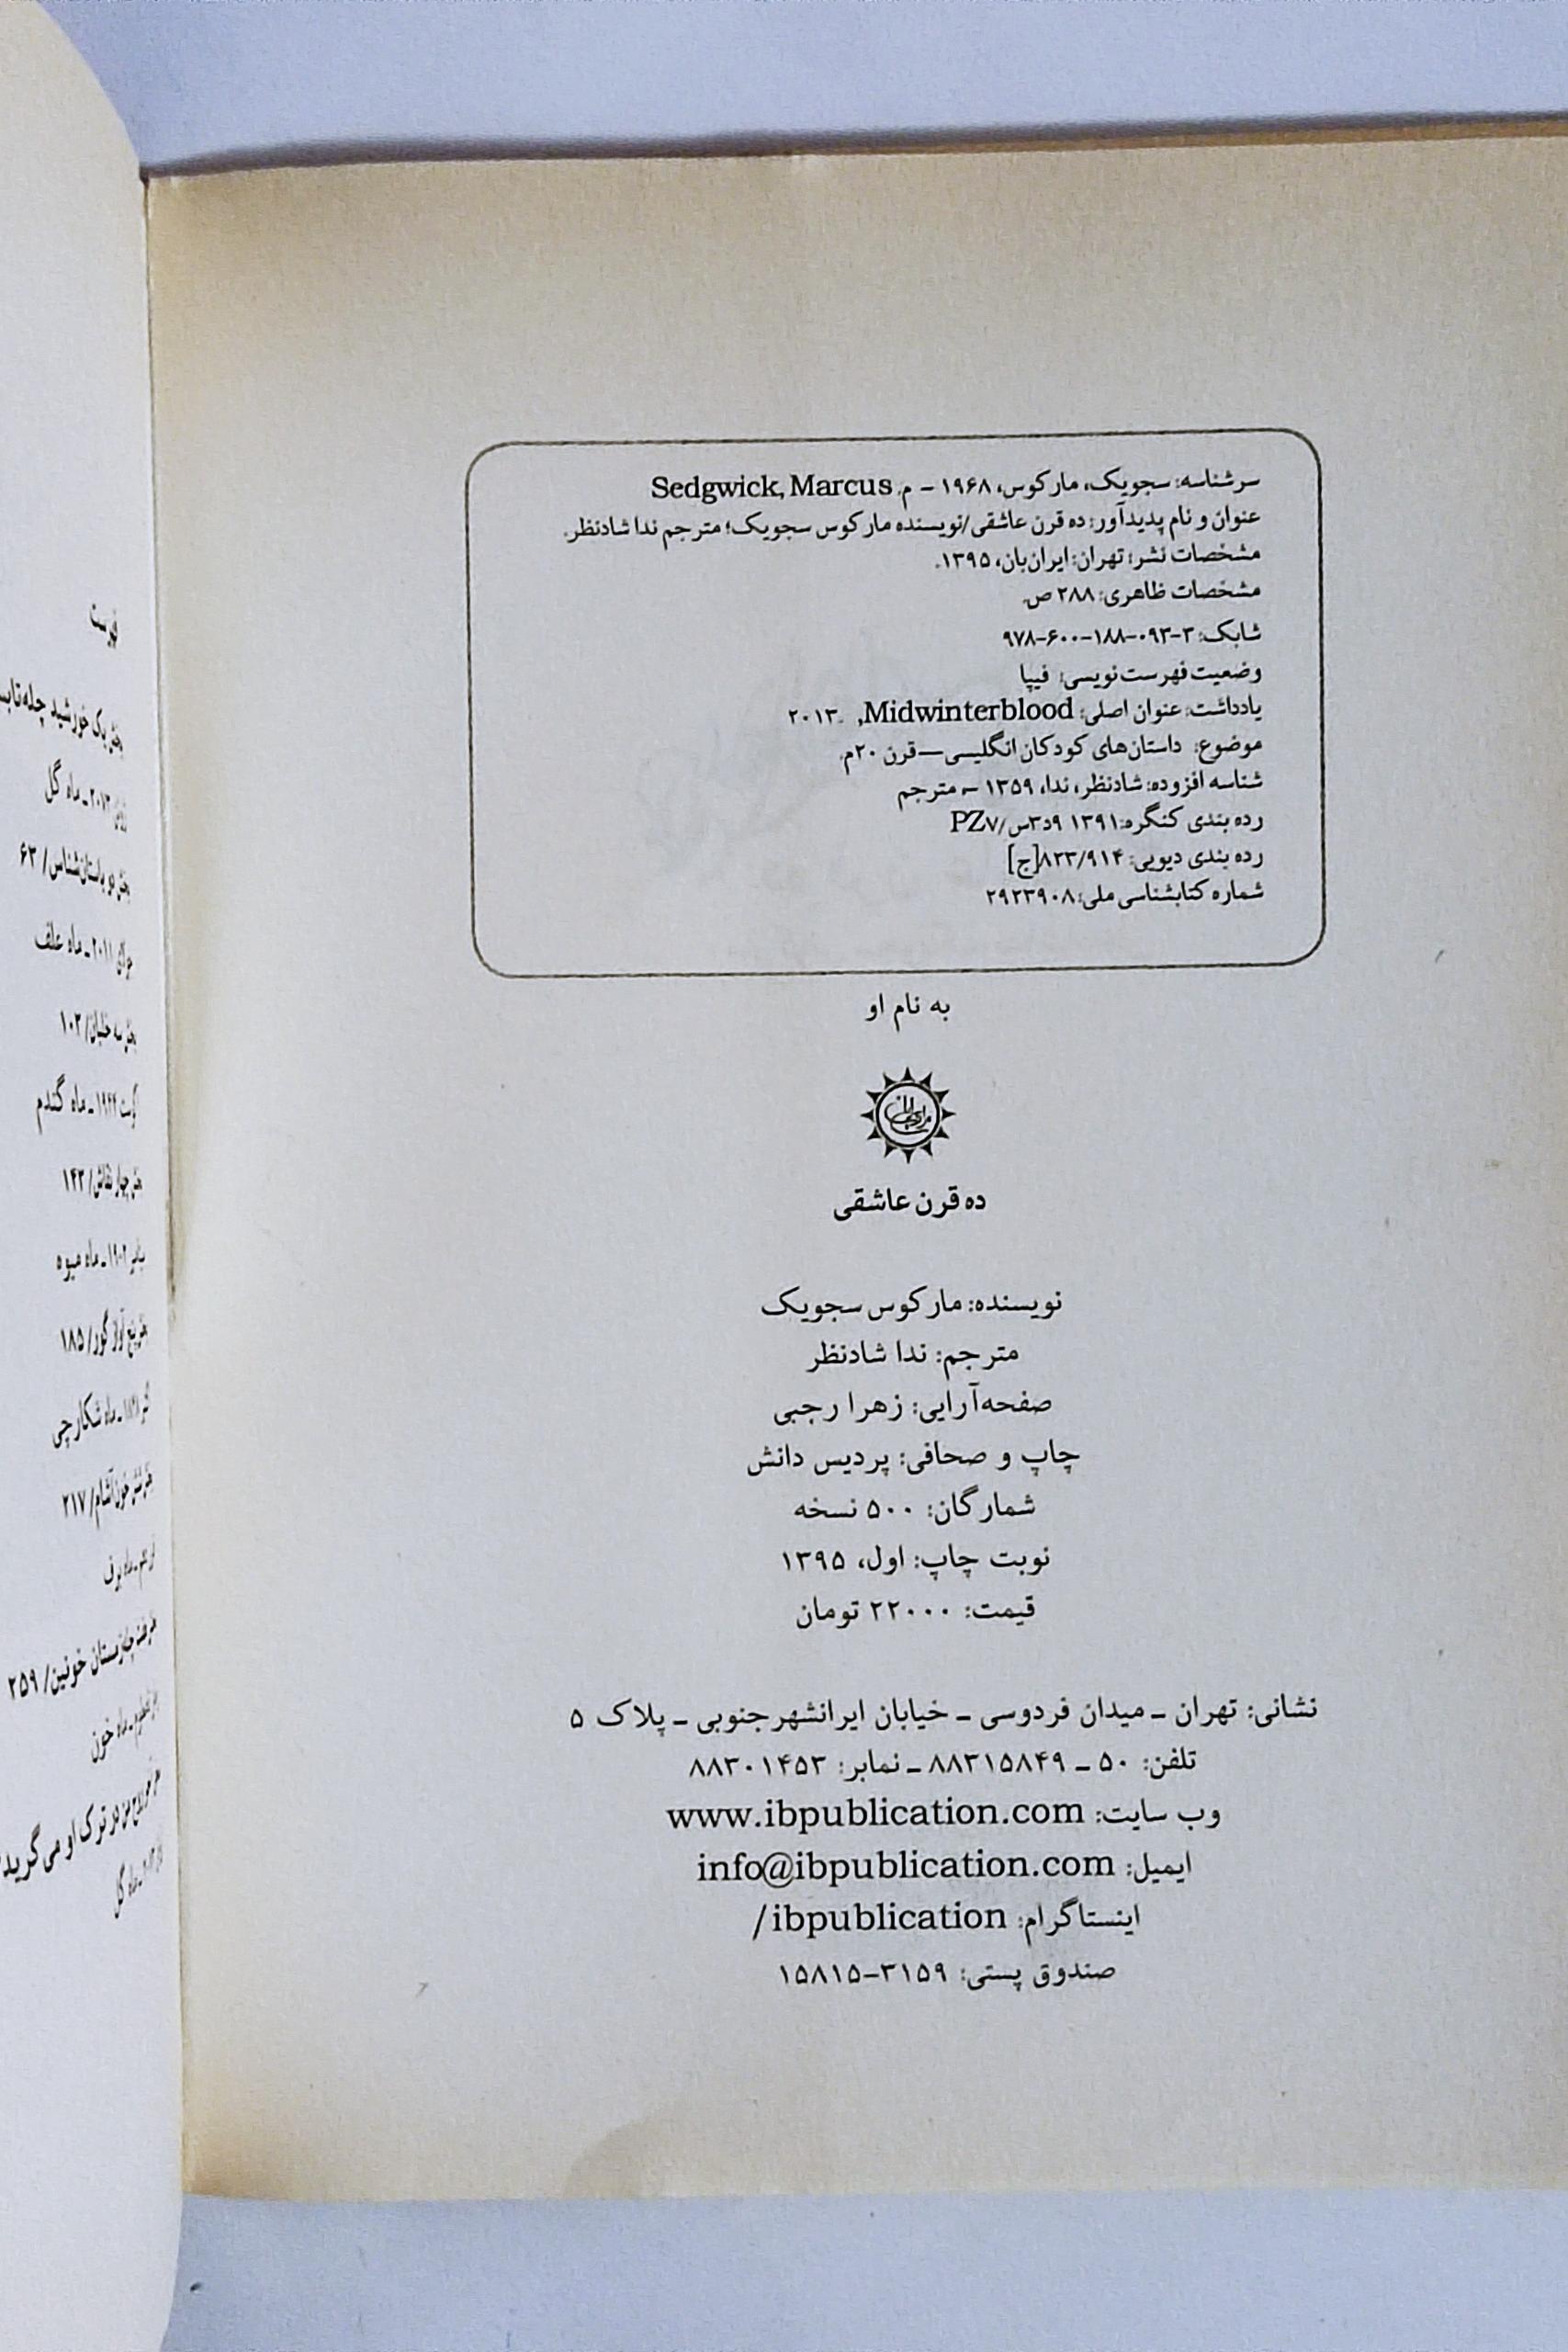 سرشناسه: سجویک، مارکوس، ۱۹۶۸ - م. Sedgwick, Marcus
عنوان و نام پدیدآور: ده قرن عاشقی/نویسنده مارکوس سجویک؛ مترجم ندا شادنظر.
مشخصات نشر: تهران: ایران‌بان، ۱۳۹۵.
مشخصات ظاهری: ۲۸۸ ص.
شابک: ۳-۰۹۳-۱۸۸-۶۰۰-۹۷۸
وضعیت فهرست‌نویسی: فیپا
یادداشت: عنوان اصلی: Midwinterblood, ۲۰۱۳.
موضوع: داستان‌های کودکان انگلیسی—قرن ۲۰م.
شناسه افزوده: شادنظر، ندا، ۱۳۵۹ -، مترجم
رده بندی کنگره: ۱۳۹۱ ۹د۳س/PZ۷
رده بندی دیویی: ۸۲۳/۹۱۴[ج]
شماره کتابشناسی ملی: ۲۹۲۳۹۰۸
به نام او
ده قرن عاشقی
نویسنده: مارکوس سجویک
مترجم: ندا شادنظر
صفحه‌آرایی: زهرا رجبی
چاپ و صحافی: پردیس دانش
شمارگان: ۵۰۰ نسخه
نوبت چاپ: اول، ۱۳۹۵
قیمت: ۲۲۰۰۰ تومان
نشانی: تهران ـ میدان فردوسی ـ خیابان ایرانشهر جنوبی ـ پلاک ۵
تلفن: ۵۰ ـ ۸۸۳۱۵۸۴۹ ـ نمابر: ۸۸۳۰۱۴۵۳
وب سایت: www.ibpublication.com
ایمیل: info@ibpublication.com
اینستاگرام: ibpublication/
صندوق پستی: ۳۱۵۹-۱۵۸۱۵
فهرست
خورشید
ماه گل
باستان‌شناس/ ۶۳
۲۰۱۱ ـ ماه علف
خلبان/ ۱۰۲
ماه گندم
نقاش/ ۱۴۳
۱۹۰۲ ـ ماه میوه
گور/ ۱۸۵
ماه شکارچی
خون‌آشام/ ۲۱۷
ماه برف
خونین/ ۲۵۹
ماه خون
ترک او می‌گرید